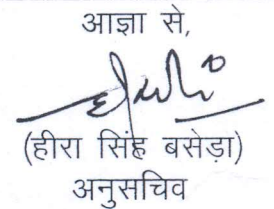 आज्ञा से,
(हीरा सिंह बसेड़ा)
अनुसचिव